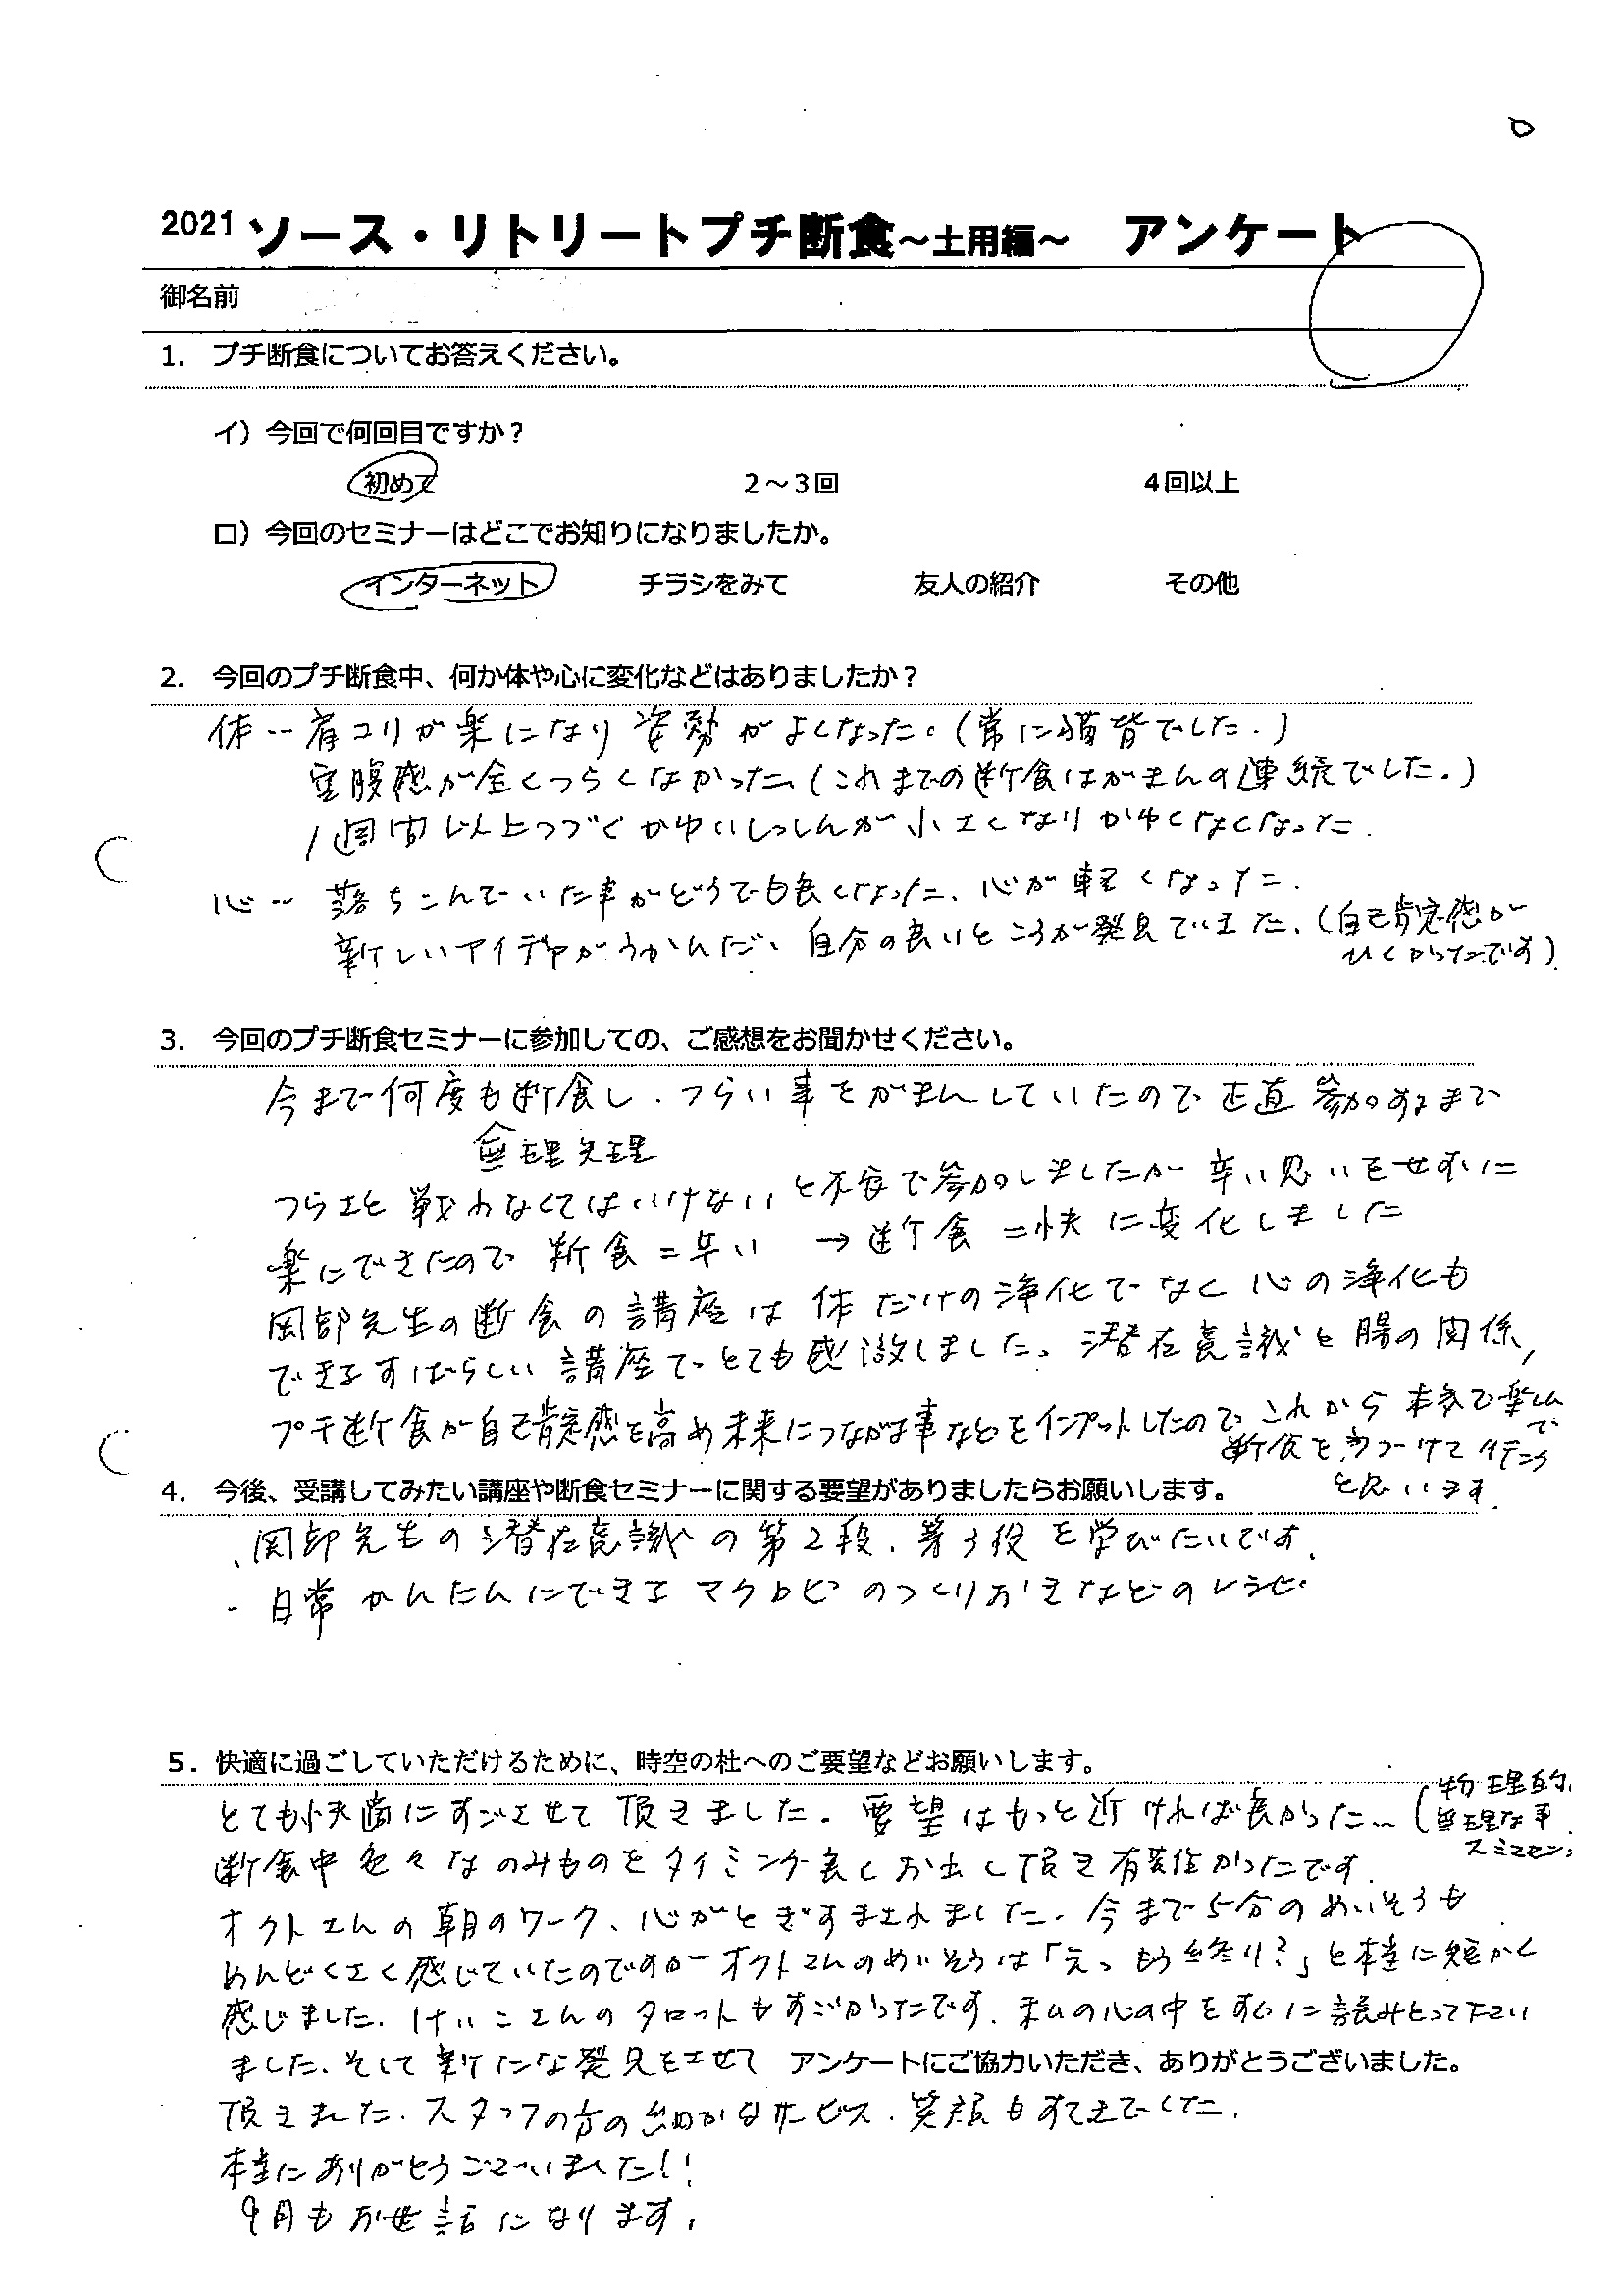 2021 ソース・リトリートプチ断食～土用編～　アンケート
御名前
1. プチ断食についてお答えください。
イ）今回で何回目ですか？
初めて　２～３回　４回以上
ロ）今回のセミナーはどこでお知りになりましたか。
インターネット　チラシをみて　友人の紹介　その他
2. 今回のプチ断食中、何か体や心に変化などはありましたか？
体… 肩コリが楽になり 姿勢がよくなった。（常に猫背でした.）
空腹感が全くつらくなかった、（これまでの断食はがまんの連続でした.）
1週間以上つづくかゆいしっしんが小さくなりかゆくなくなった.
心… 落ちこんでいた事がどうでも良くなった、心が軽くなった.
新しいアイデアがうかんだ、自分の良いところが発見できました、（自己肯定感が
ひくかったです）
3. 今回のプチ断食セミナーに参加しての、ご感想をお聞かせください。
今まで何度も断食し、つらい事をがまんしていたので正直 参加するまで
無理矢理
つらさと戦わなくてはいけないと不安で参加しましたが 辛い思いをせずに
楽にできたので 断食＝辛い →断食＝快に変化しました
岡部先生の断食の講座は 体だけの浄化でなく 心の浄化も
できるすばらしい講座でとても感激しました。潜在意識と腸の関係,
プチ断食が自己肯定感を高め未来につながる事などをインプットしたので これから 本気で楽しん
で
断食を つづけて 行こう
と思います.
4. 今後、受講してみたい講座や断食セミナーに関する要望がありましたらお願いします。
、岡部先生の潜在意識の第２段、第３段を学びたいです.
- 日常かんたんにできる マクロビのつくりおきなどのレシピ
5. 快適に過ごしていただけるために、時空の杜へのご要望などお願いします。
とても快適にすごさせて頂きました. 要望はもっと近ければ良かった…（物理的、
無理な事
スミマセン）
断食中 色々なのみものをタイミング良くお出して頂き 有難かったです.
オクトさんの朝のワーク、心がとぎすまされました. 今まで5分のめいそうも
めんどくさく感じていたのですがオクトさんのめいそうは「えっ もう終り?」と本当に短かく
感じました. けいこさんのタロットもすごかったです. 私の心の中をすぐに読みとって下さい
ました. そして新たな発見をさせて アンケートにご協力いただき、ありがとうございました。
頂きました. スタッフの方の細かなサービス、笑顔もすてきでした.
本当にありがとうございました!!
9月もお世話になります.